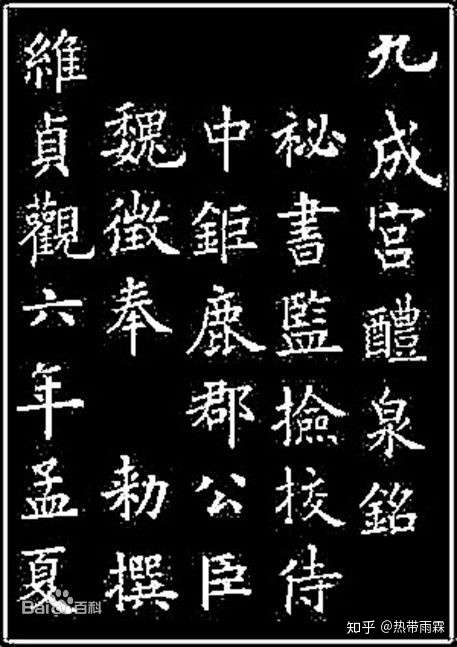 九成宮醴泉銘
祕書監撿挍侍
中鉅鹿郡公臣
魏徵奉 勑撰
維貞觀六年孟夏
Baidu百科
知乎 @热带雨霖